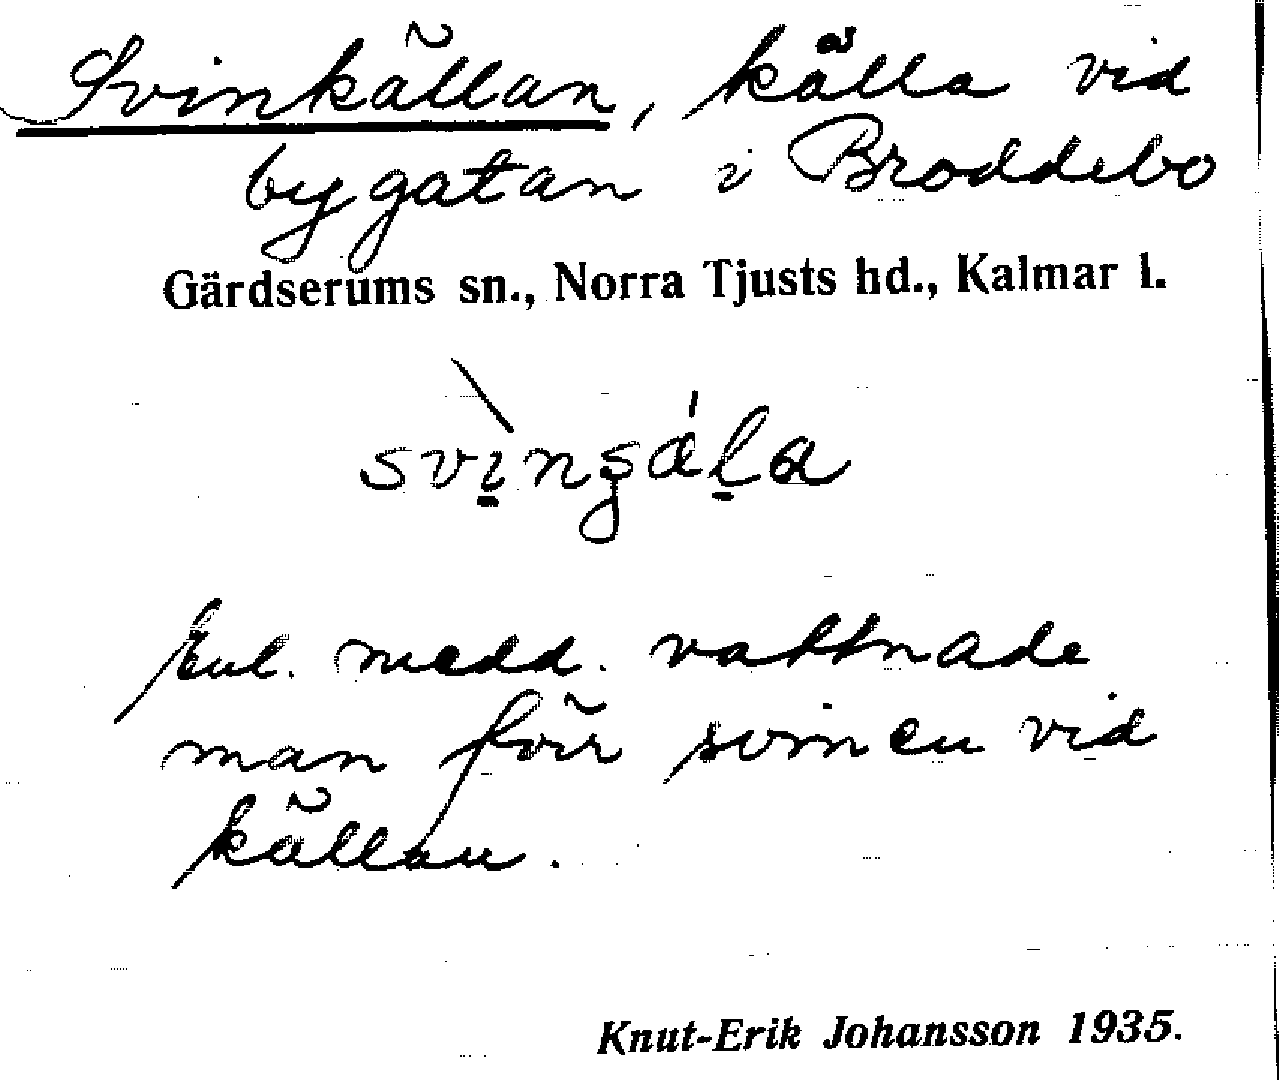 Svinkällan, källa vid
bygatan i Broddebo
Gärdserums sn., Norra Tjusts hd., Kalmar l.
Enl. medd. vattnade
man förr svinen vid
källan.
Knut-Erik Johansson 1935.